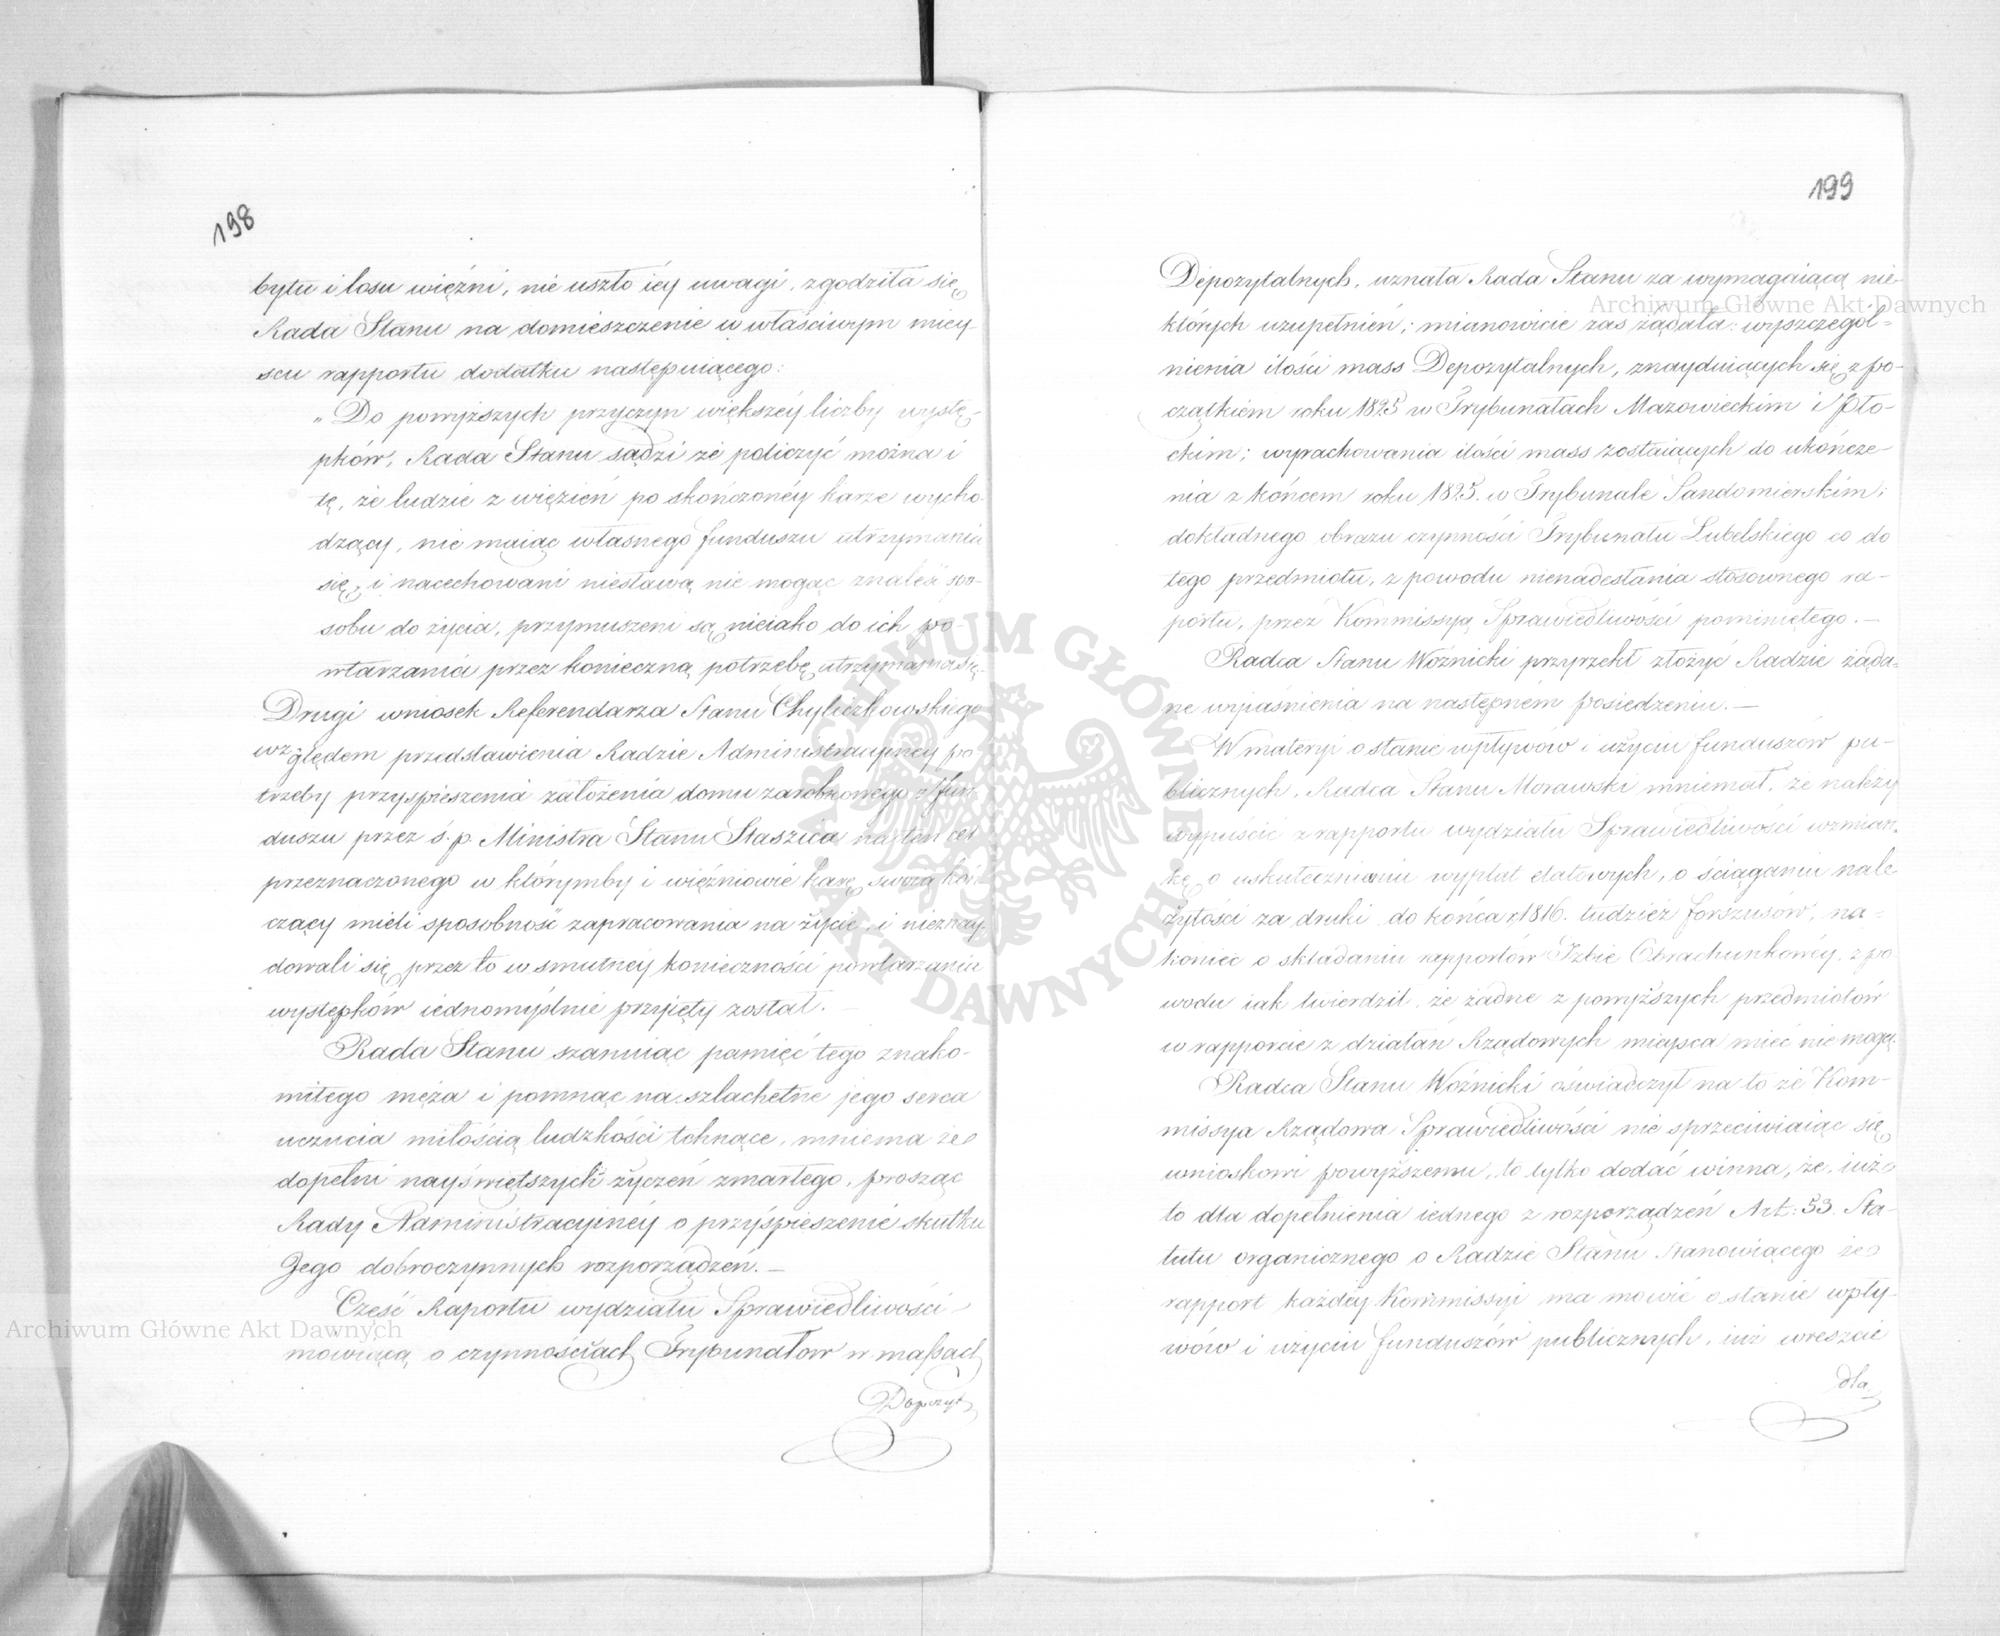 198
bytu i losu więźni, nie uszło iéy uwagi, zgodziła się
Rada Stanu na domieszczenie w właściwym miey-
scu rapportu dodatku następuiącego:
„Do powyższych przyczyn większéy liczby wystę-
pków, Rada Stanu sądzi że policzyć można i
tę, że ludzie z więzień po skończonéy karze wycho-
dzący, nie maiąc własnego funduszu utrzymania
się, i nacechowani niesławą nie mogąc znaleść spo-
sobu do życia, przymuszeni są nieiako do ich po-
wtarzania przez konieczną potrzebę utrzymania się.
Drugi wniosek Referendarza Stanu Chyliczkowskiego
względem przedstawienia Radzie Administracyinéy po-
trzeby przyspieszenia założenia domu zarobkowego z fun-
duszu przez ś. p. Ministra Stanu Staszica na ten cel
przeznaczonego w którymby i więźniowie karę swoią koń-
czący mieli sposobność zapracowania na życie, i nieznay-
dowali się przez to w smutnéy konieczności powtarzania
występków iednomyślnie przyięty został. —
Rada Stanu szanuiąc pamięć tego znako-
mitego męża i pomnąc na szlachetne jego serca
uczucia miłością ludzkości tchnące, mniema że
dopełni nayświętszych życzeń zmarłego, prosząc
Rady Administracyinéy o przyśpieszenie skutku
Jego dobroczynnych rozporządzeń. —
Część Raportu wydziału Sprawiedliwości
mowiącą o czynnościach Trybunałow w massach
Depozyt
199
Depozytalnych, uznała Rada Stanu za wymagaiącą nie-
których uzupełnień; mianowicie zas żądała: wyszczegól-
nienia ilości mass Depozytalnych, znayduiących się z po-
czątkiem roku 1825 w Trybunałach Mazowieckim i Pło-
ckim; wyrachowania ilości mass zostaiących do ukończe-
nia z końcem roku 1825. w Trybunale Sandomierskim;
dokładnego obrazu czynności Trybunału Lubelskiego co do
tego przedmiotu, z powodu nienadesłania stosownego ra-
portu, przez Kommissyą Sprawiedliwości pominiętego. —
Radca Stanu Woźnicki przyrzekł złożyć Radzie żąda-
ne wyiaśnienia na następném posiedzeniu. —
W materyi o stanie wpływów i użyciu funduszów pu-
blicznych, Radca Stanu Morawski mniemał, że należy
wypuścić z rapportu wydziału Sprawiedliwości wzmian-
kę o uskutecznianiu wypłat etatowych, o ściąganiu nale-
żytości za druki do końca r. 1816. tudzież forszusów, na-
koniec o składaniu rapportów Izbie Obrachunkowéy, z po-
wodu iak twierdził, że żadne z powyższych przedmiotów
w rapporcie z działań Rządowych miejsca mieć nie mogą.
Radca Stanu Woźnicki oświadczył na to że Kom-
missya Rządowa Sprawiedliwości nie sprzeciwiaiąc się
wnioskowi powyższemu, to tylko dodać winna, że, iuż
to dla dopełnienia iednego z rozporządzeń Art: 33. Sta-
tutu organicznego o Radzie Stanu stanowiącego że
rapport każdéy Kommissyi ma mowić o stanie wpły-
wów i użyciu funduszów publicznych, iuż wreszcie
dla
Archiwum Główne Akt Dawnych
Archiwum Główne Akt Dawnych
ARCHIWUM GŁÓWNE AKT DAWNYCH